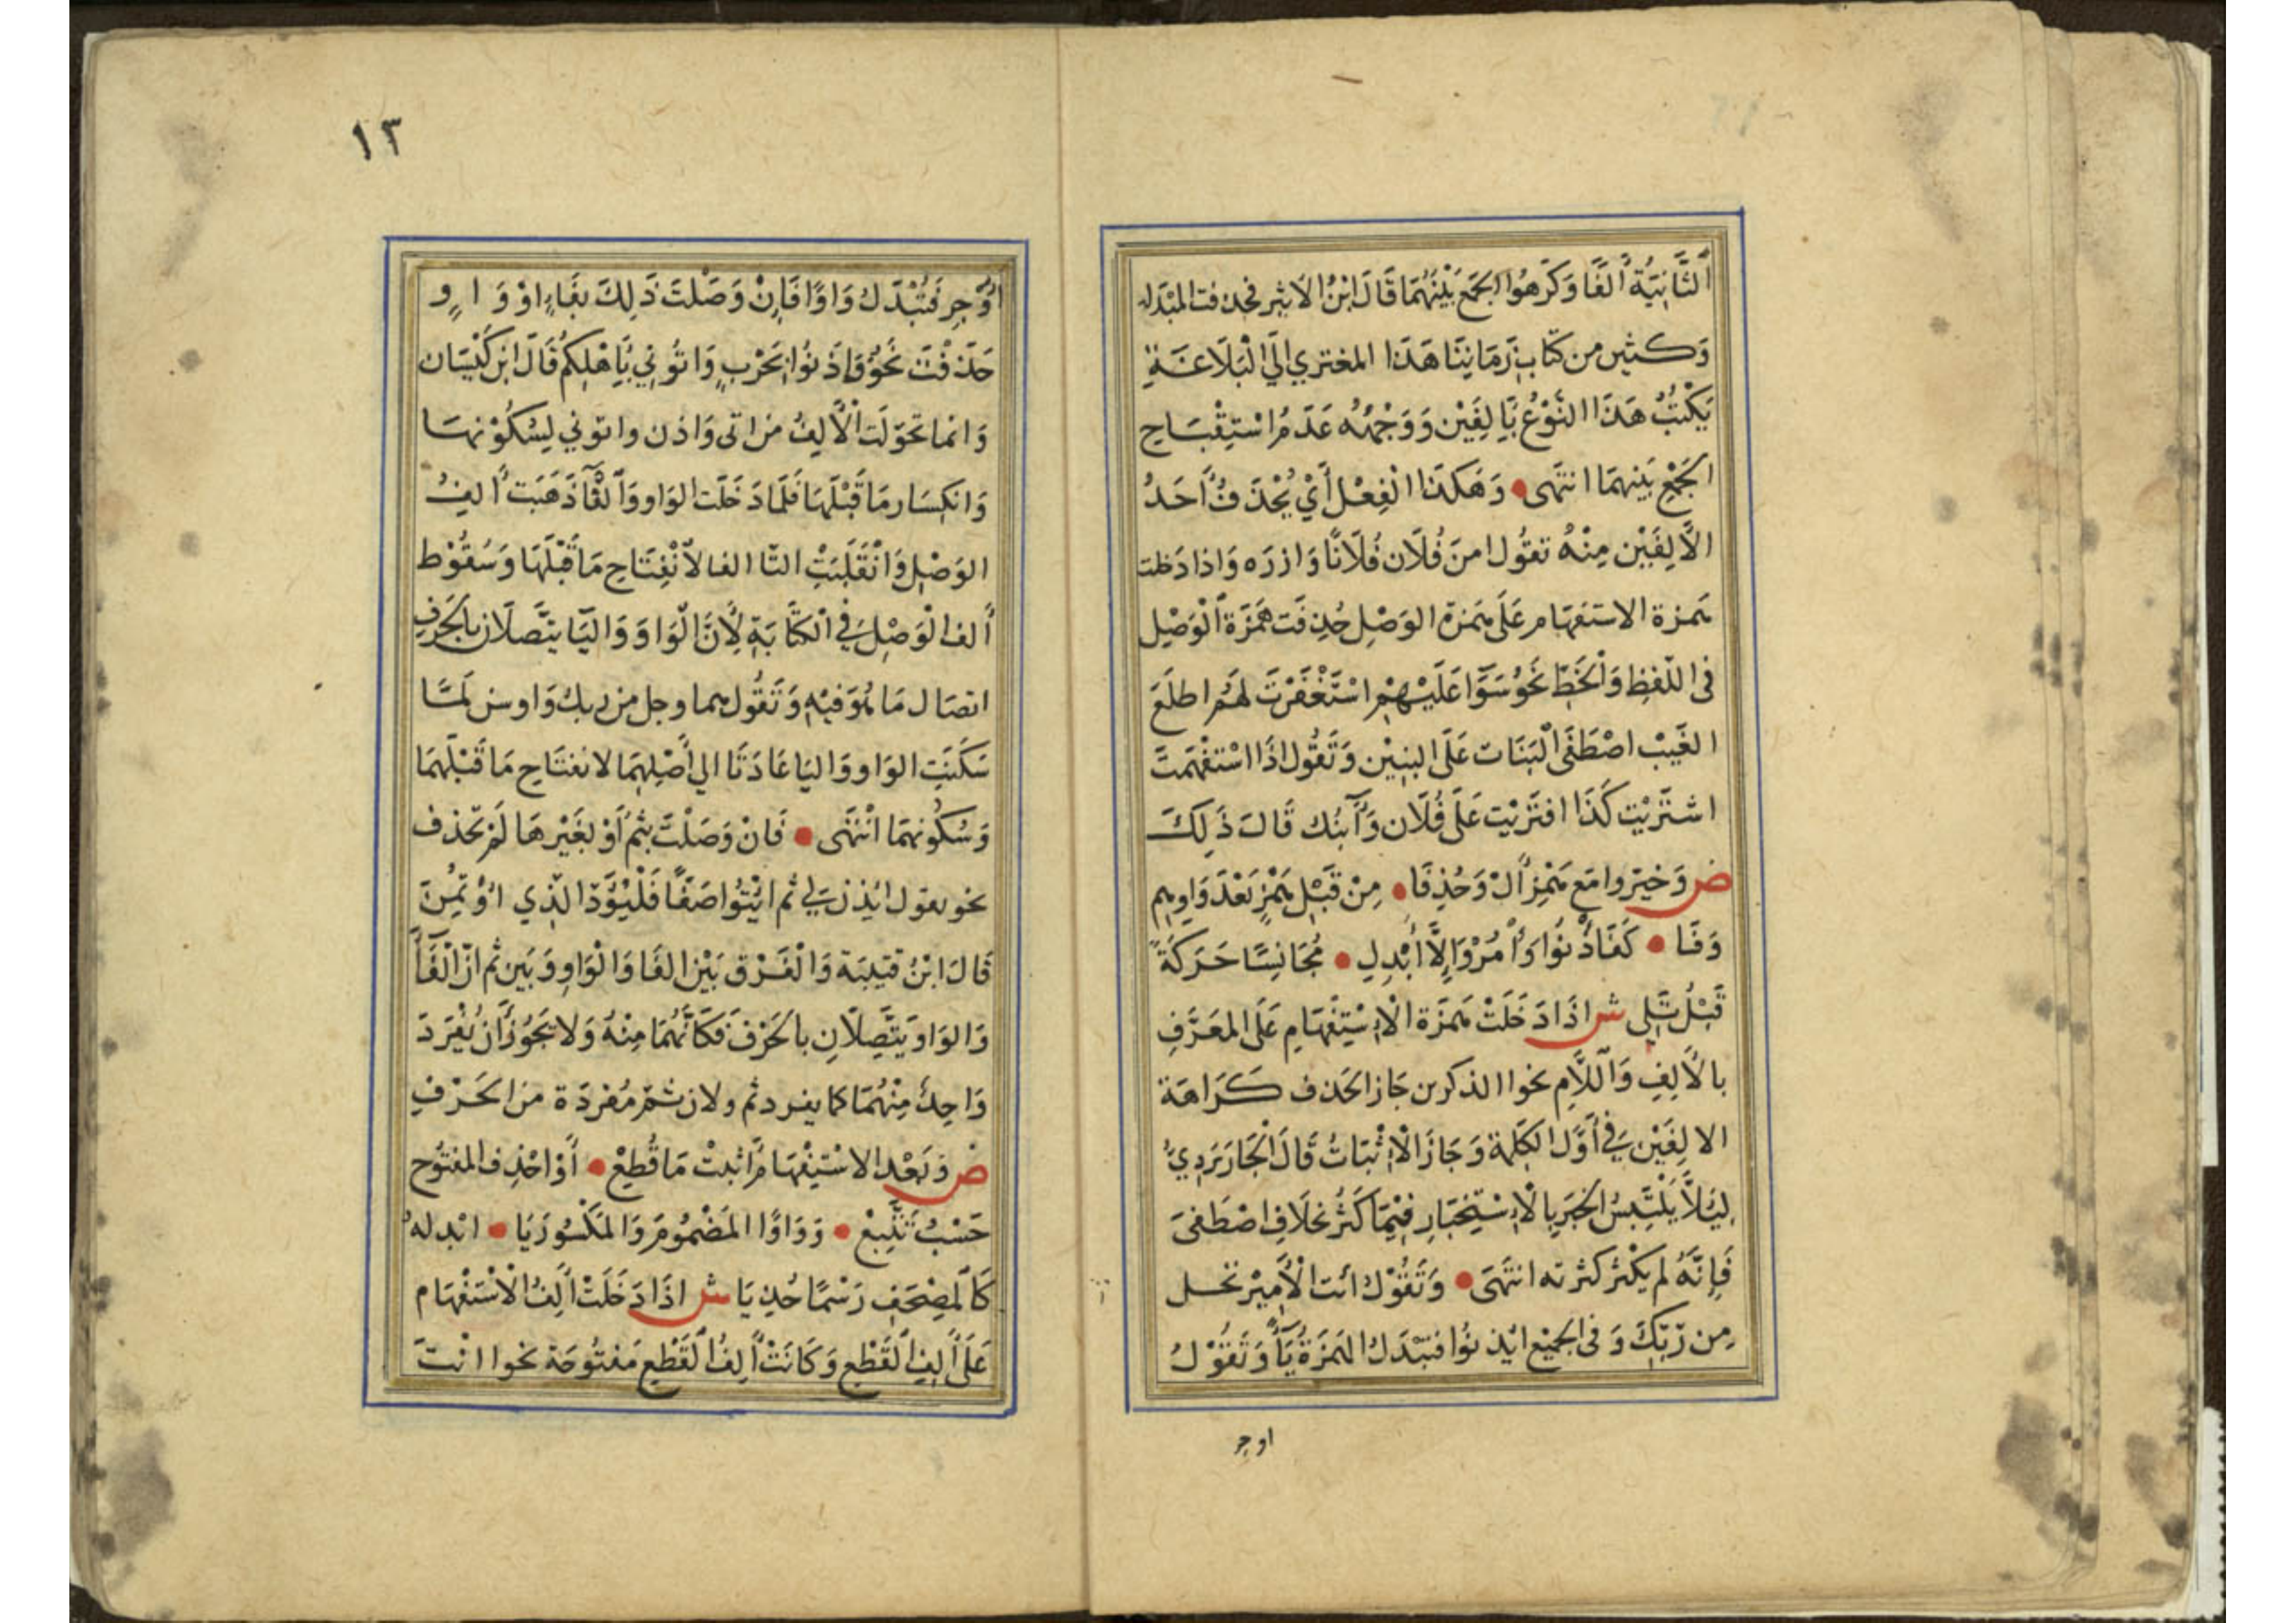 الثَّانِيَةُ أَلفًا وَكَرهُوا الجَمعَ بَيْنَهُمَا قَالَ ابْنُ الأَثير فحذفت المبْدَله
وَكثير من كتَّاب زَمَاننَا هَذَا المعتزي إلَى الْبَلَاغَة
يَكْتبُ هَذَا النَّوْعُ بَأَلِفَيْن وَوَجْهُهُ عَدَمُ اسْتِقْبَاحِ
الجَمْعِ بَينهمَا انتَهى • وَهَكَذَا الْفِعْل أَيْ يُحْذَفُ أَحَدُ
الأَلِفَيْن مِنْهُ تقُول امنَ فُلَان فُلَانًا وَازرَه وَاذا دَخلت
هَمزة الاستَفهَام عَلَى هَمزة الوَصْل حُذِفَت هَمْزَة الْوَصْل
فى اللّفظِ وَالخَطِّ نَحْو سَوَّا عَلَيْهِمْ اسْتَغْفَرْتَ لَهُم اطلَعَ
الغَيبْ اصْطَفَى الْبَنَات عَلَى البنِيْن وَتَقُول اذَا اسْتفْهَمتَ
اشتَرَيْت كَذَا افتَرَيْت عَلَى فُلَان وَآبنُك قَالَ ذَلِكَ
ض وَخيّروا مَع هَمْزِ أَلْ وَحُذِفَا • مِنْ قَبْلِ هَمْزٍ بَعْدَ وَاوٍ
وَفَا • كَفَأْذَنُوا وَأْمُرْ وَإِلَّا أُبْدِلِ • مُجَانِسًا حَرَكَةً
قَبْلُ تَلِي ش اذَا دَخَلَتْ هَمزَة الْاِسْتِفْهَامِ عَلَى المعَرَّفِ
بالأَلِفِ وَاللَّامِ نحو االذكرين جَاز الحَذف كَرَاهَة
الالِفَيْن فِي أَوَّل الكَلِمَة وَجَازَ الْاِثْبَاتُ قَالَ الْجَارَبَرْدِيُّ
لِيَلَّا يَلْتَبِسُ الخَبَر بِالْاِسْتِخْبَارِ فِيْمَا كَثُرَ بخلَافِ اصْطَفىَ
فَإِنَّهُ لم يكْثر كثرته انتَهَى • وَتَقُوْلُ ائت الْأَمِيْر تخل
مِن رَّبِّكَ وَفى الجمِيْع ايْذنُوا فتُبْدَلُ الهَمزَةُ يَاءً وَتَقُوْلُ
اوجر
١٣
اوْجِر فَتُبْدَلُ وَاوًا فَإنْ وَصَلْتَ ذَلِكَ بفَاءٍ اوْ وَاوٍ
حَذَفْتَ نَحْوَ فَاذَنُوا بحَرْبٍ وَاتُونِي بَأهْلِكُمْ قَالَ ابن كَيْسَان
وَانما تحوّلَت الْأَلِفُ من اتى وَاذن واتوني لِسُكُوْنهَا
وَانكِسَار مَا قَبْلَهَا فَلَمَّا دَخَلَت الوَاو وَالْفَآ ذَهَبَت أَلِفُ
الوَصْلِ وَانْقَلَبَتْ التّا الفا لانْفِتَاحِ مَا قَبْلَهَا وَسُقُوْط
أَلف الْوَصْلِ فِي الْكتَابَةِ لِأَنَّ الْوَاوَ وَالْيَا يتَّصلَان بالحَرفِ
اتصَال مَا هُوَ فيْهِ وَتَقُول وجل من ربك وَاوسن لَمَّا
سَكَنَتِ الوَاو وَاليَا عَادَتَا الي أَصْلِهِمَا لانفتَاحِ مَا قَبْلَهُمَا
وَسُكُونهمَا انْتَهَى • فَانْ وَصَلْتَ بثُمَّ أَوْ بغَيْرهَا لَمْ تحذف
نحو يقول ائذن لي ثم ائْتُوا صَفًّا فَلْيُؤَدّ الّذي اؤْتُمِنَ
قَالَ ابْنُ قتيبَة وَالْفَرْق بَيْن الفَا وَالْوَاوِ وَبَين ثم انّ الْفَا
وَالوَاو يَتَّصِلَانِ بالحَرْف فَكَأنَّهُمَا مِنْهُ وَلَا يَجُوْزُ أَن يُفْرَدَ
وَاحِدٌ مِنْهُمَا كما يفرد ثم ولان ثمّ مُفْرَدَة مِن الحَرْفِ
ض وَبَعْد الاسْتِفْهَام أَثبتْ مَا قُطِعْ • أَوْ احْذِف المفتُوْح
حَسْبُ تَتَّبِعْ • وَوَاوًا المَضْمُوْمَ وَالمَكْسُوْرَ يَا • ابْدله
كَالمصْحَفِ رَسْمًا حُذِيَا ش اذَا دَخَلَتْ أَلِفُ الْاسْتِفْهَام
عَلَى أَلِفِ الْقَطْعِ وَكَانَتْ أَلِفُ الْقَطْعِ مَفْتُوْحَة نحو اانْتَ